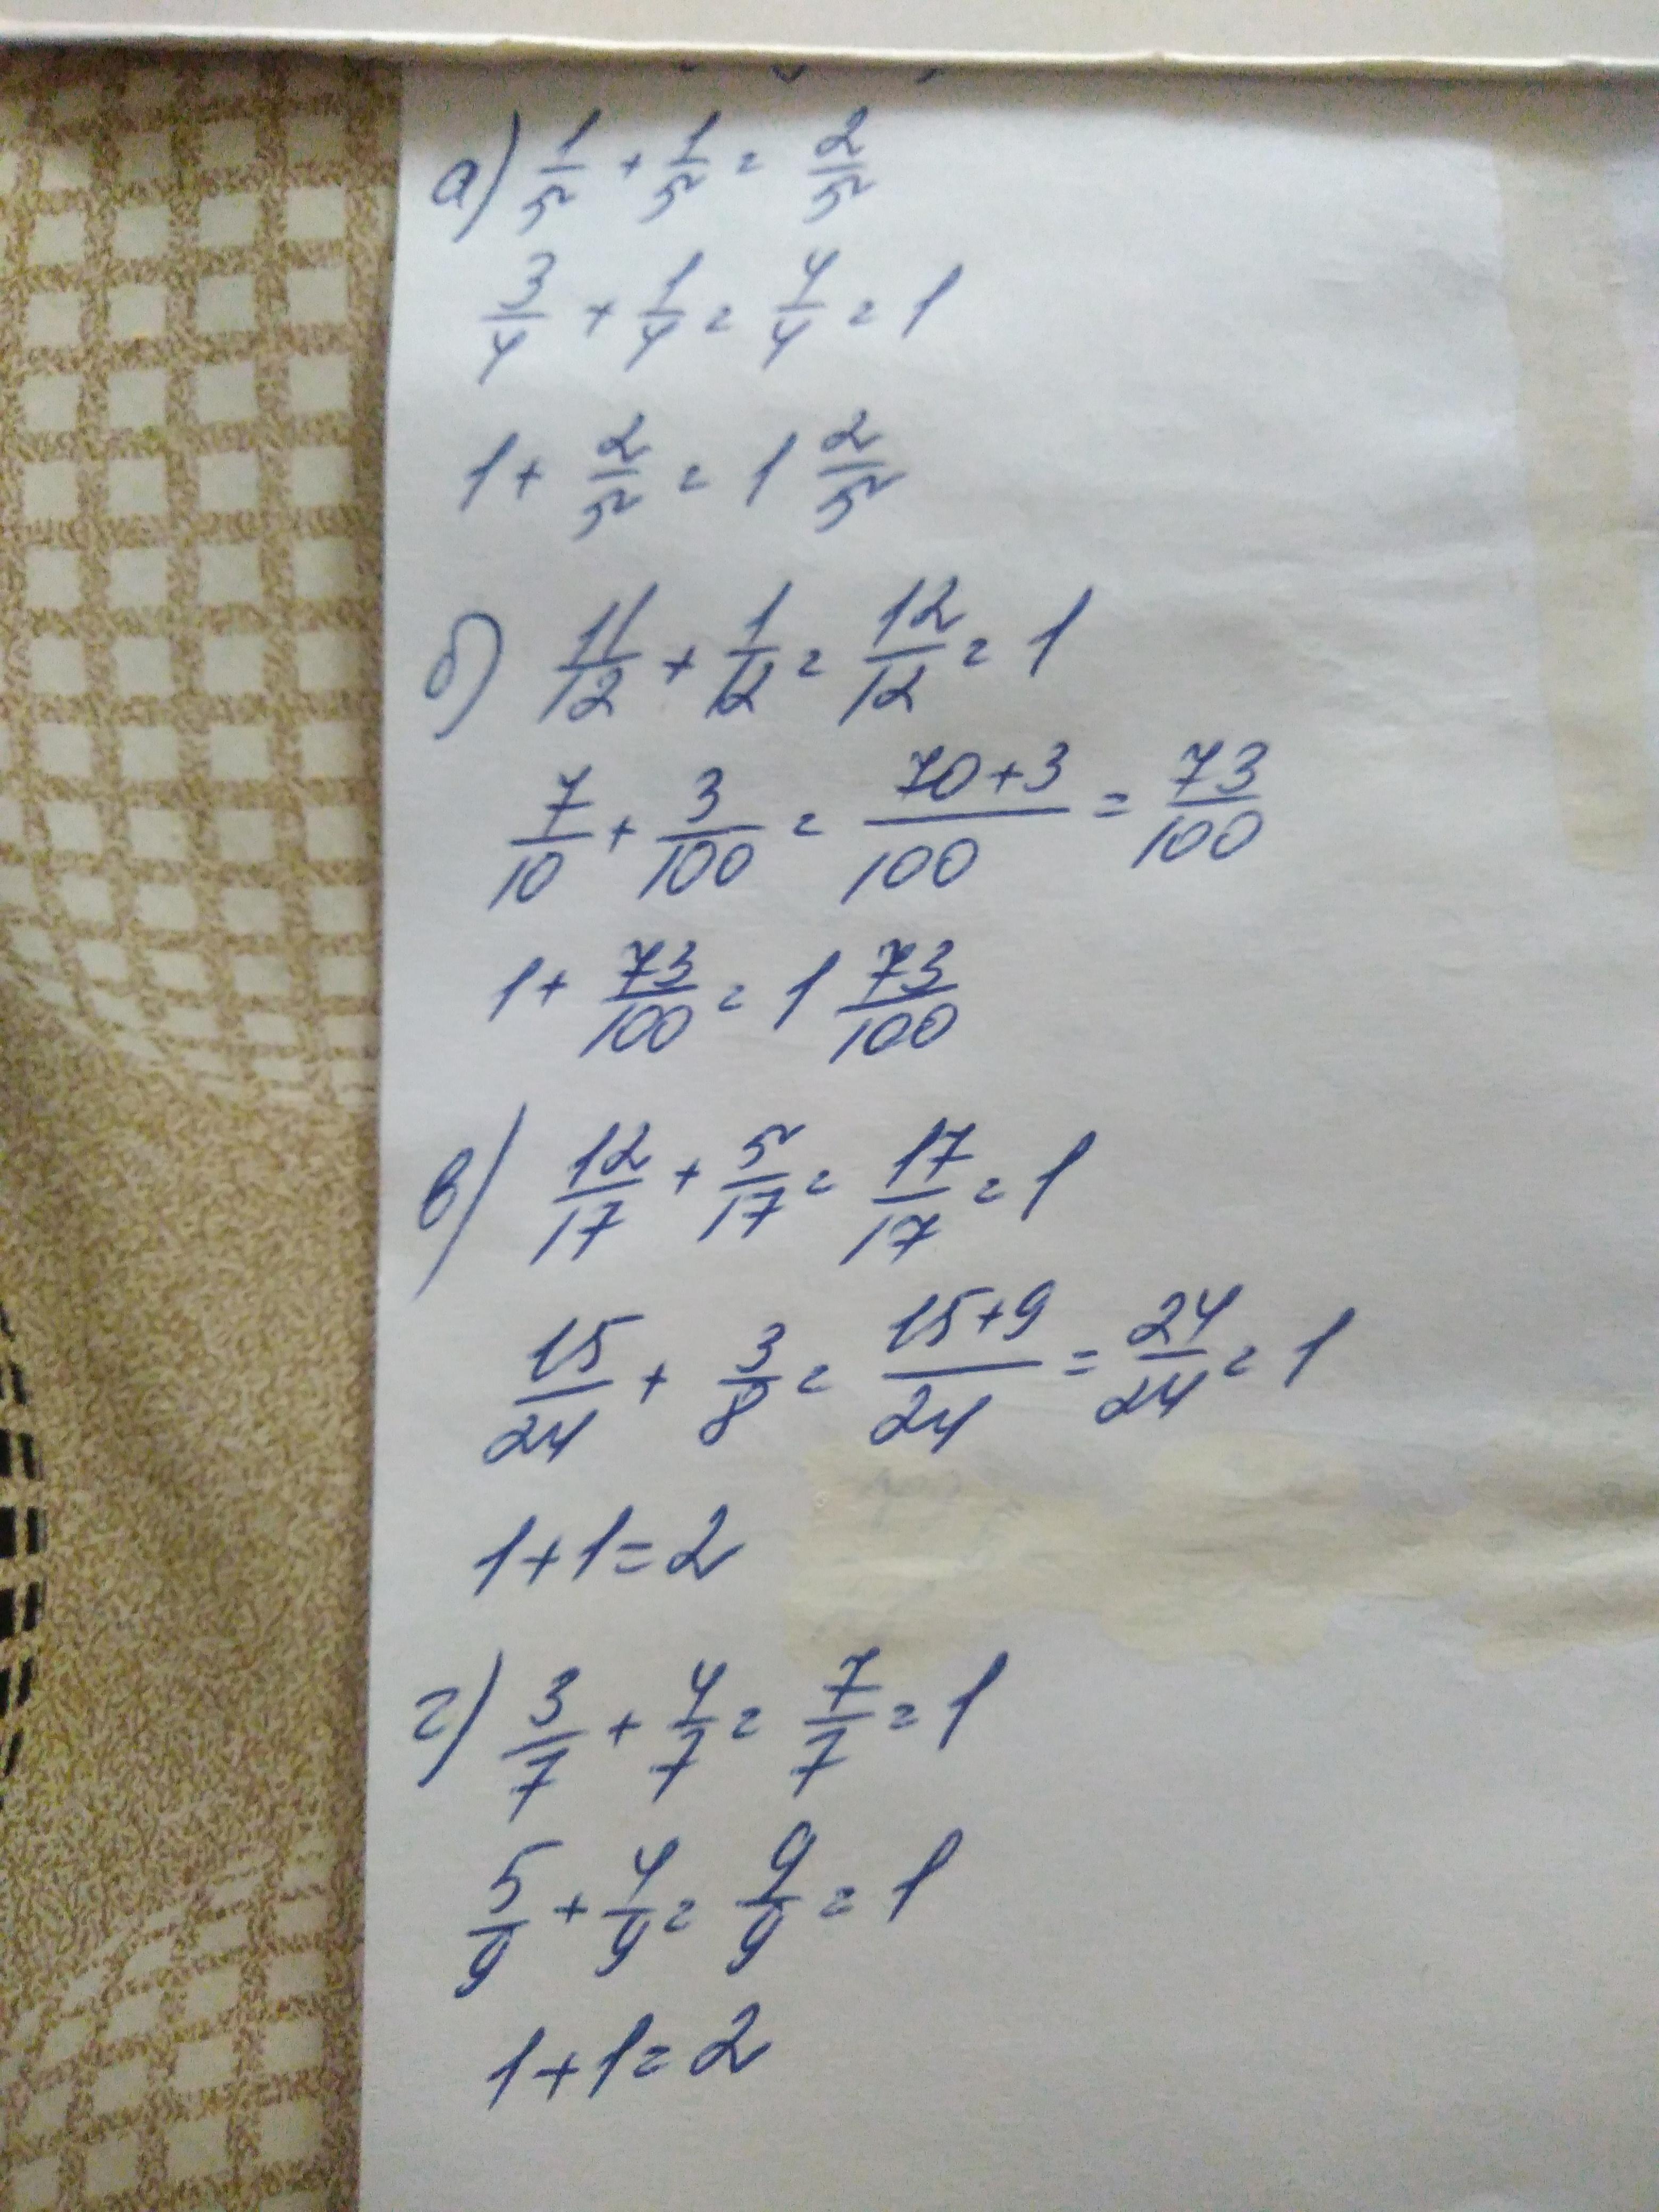 а) 1/5 + 1/5 = 2/5
3/4 + 1/4 = 4/4 = 1
1 + 2/5 = 1 2/5
б) 11/12 + 1/12 = 12/12 = 1
7/10 + 3/100 = (70+3)/100 = 73/100
1 + 73/100 = 1 73/100
в) 12/17 + 5/17 = 17/17 = 1
15/24 + 3/8 = (15+9)/24 = 24/24 = 1
1+1=2
г) 3/7 + 4/7 = 7/7 = 1
5/9 + 4/9 = 9/9 = 1
1+1=2